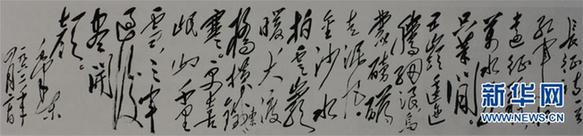 长征诗
红军
远征难
万水千
只等闲
五岭逶迤
腾细浪乌
蒙磅礴
走泥丸
金沙水
拍云崖
暖大渡
桥横铁索
寒更喜
岷山千里
雪三军
过后
尽开
颜
毛泽东
一九六二年
新华网